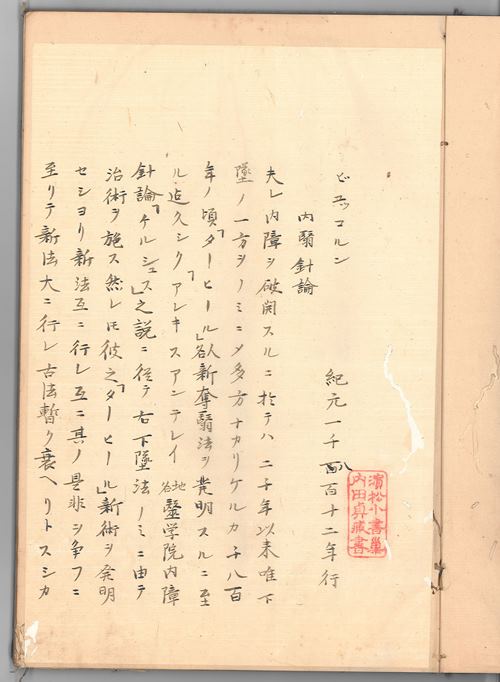 ビユッコルン
内翳針論
紀元一千八百百十二年行
濱松小書巣
内田真蔵書
夫レ内障ヲ破開スルニ於テハ二千年以来唯下
墜ノ一方ヲノミニメ多方ナカリケルカ千八百
年ノ頃「ダーヒール」欲新奪翳法ヲ発明スルニ至
ル迠久シクアレキスアンテレイ 地名 醫学院内障
針論「ケルシュス」之説ニ従テ右下墜法ノミニ由テ
治術ヲ施ス然レ𪜈彼之「ダーヒール」新術ヲ発明
セシヨリ新法互ニ行レ互ニ其ノ是非ヲ争フニ
至リテ新法大ニ行レ古法暫ク衰ヘリトスシカ